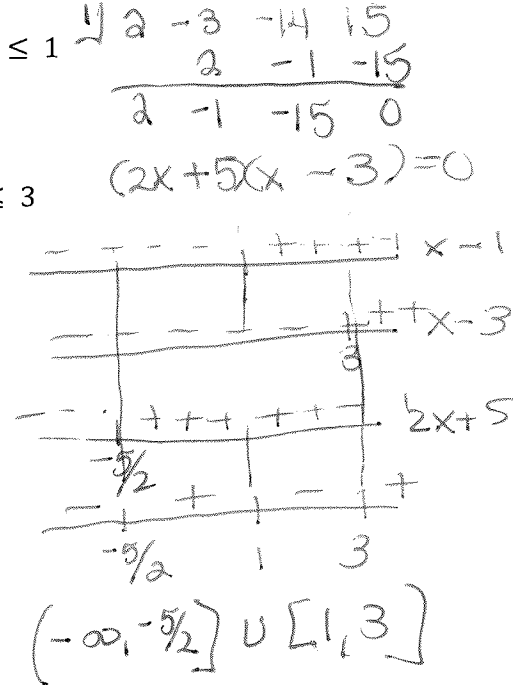 ≤ 1
1⌋ 2 -3 -14 15
2 -1 -15
2 -1 -15 0
(2x + 5)(x - 3) = 0
≤ 3
- - - - + + + - x - 1
- - - - - + + + x - 3
3
- - · + + + + + - 2x + 5
-5/2
- + - +
-5/2 1 3
(-∞, -5/2] ∪ [1, 3]